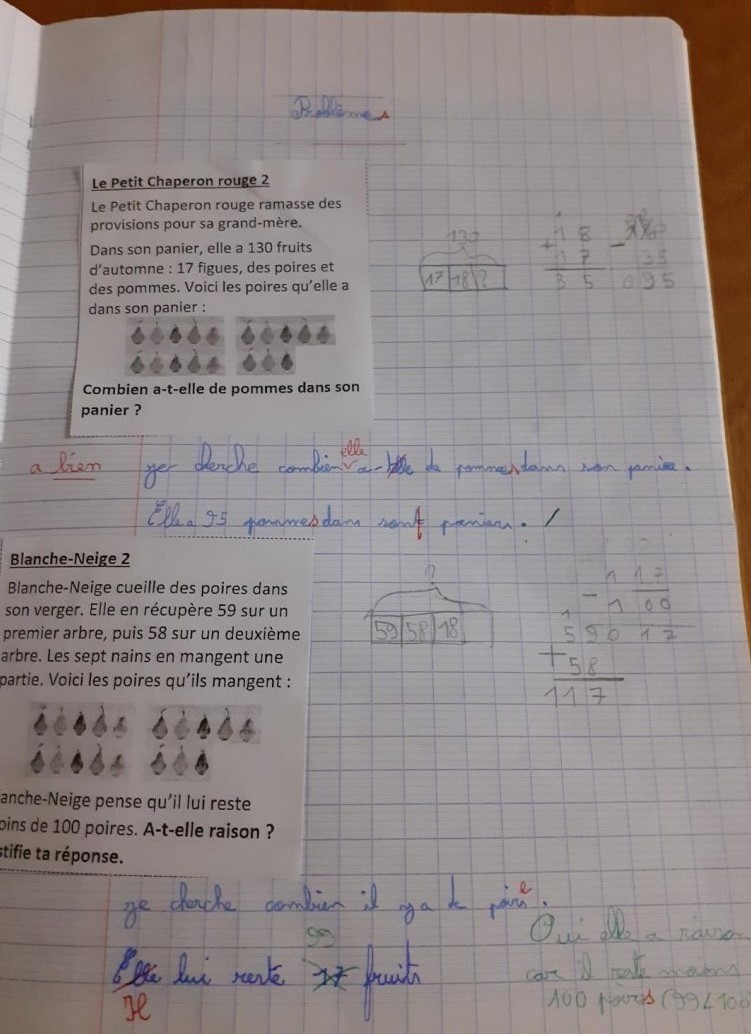 Problèmes
Le Petit Chaperon rouge 2
Le Petit Chaperon rouge ramasse des
provisions pour sa grand-mère.
Dans son panier, elle a 130 fruits
d'automne : 17 figues, des poires et
des pommes. Voici les poires qu'elle a
dans son panier :
Combien a-t-elle de pommes dans son
panier ?
130
17 18 ?
1
18
+ 17
35
-
35
095
a bien
je cherche combien elle a de pommes dans son panier.
Elle a 95 pommes dans sont paniers. /
Blanche-Neige 2
Blanche-Neige cueille des poires dans
son verger. Elle en récupère 59 sur un
premier arbre, puis 58 sur un deuxième
arbre. Les sept nains en mangent une
partie. Voici les poires qu'ils mangent :
anche-Neige pense qu'il lui reste
oins de 100 poires. A-t-elle raison ?
stifie ta réponse.
?
59 58 18
117
- 100
017
1
59
+ 58
117
je cherche combien il y a de poires.
99
Elle lui reste 17 fruits
Il
Oui elle a raison
car il reste moins
100 poires (99<100